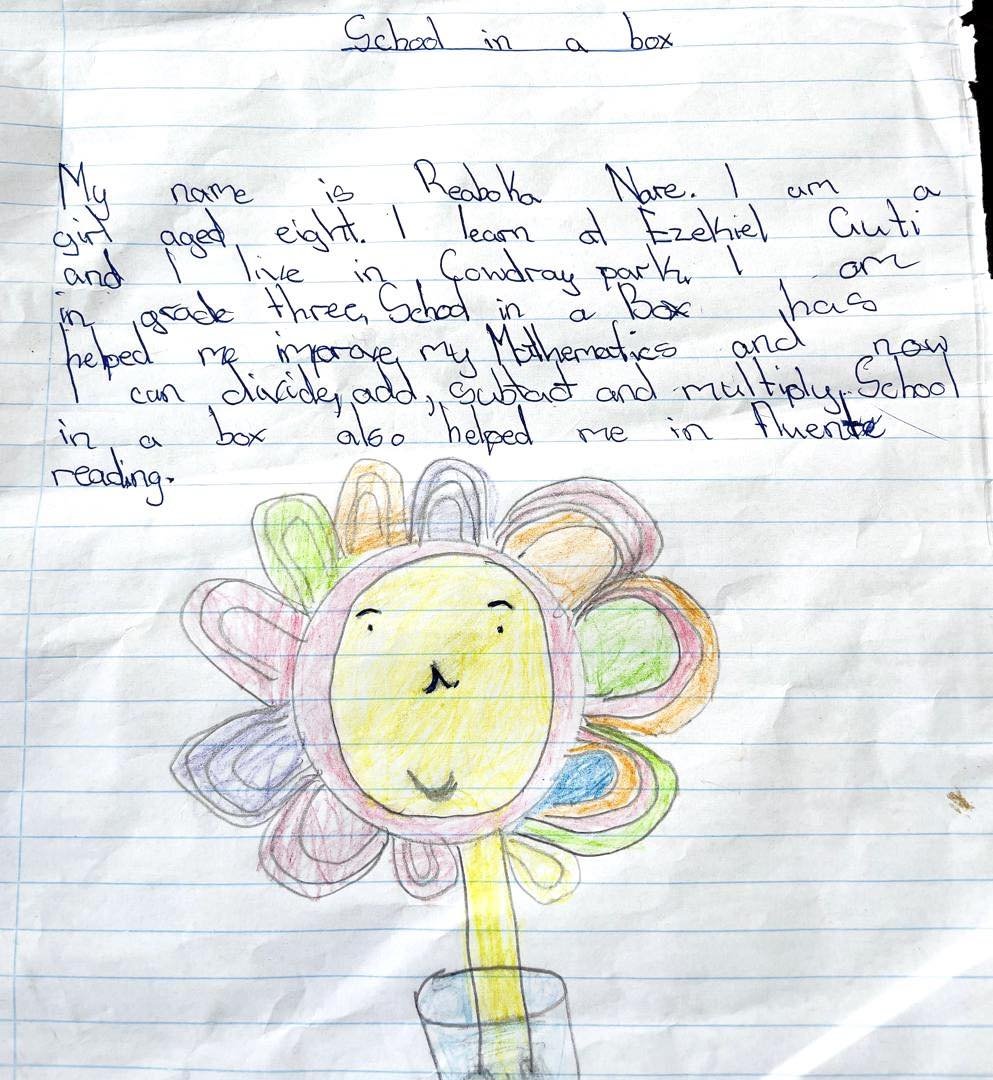 School in a box
My name is Reaboka Nare. I am a
girl aged eight. I learn at Ezekiel Guti
and I live in Cowdray park. I am
in grade three, School in a Box has
helped me improve my Mathematics and now
I can divide, add, subtact and multiply. School
in a box also helped me in fluente
reading.